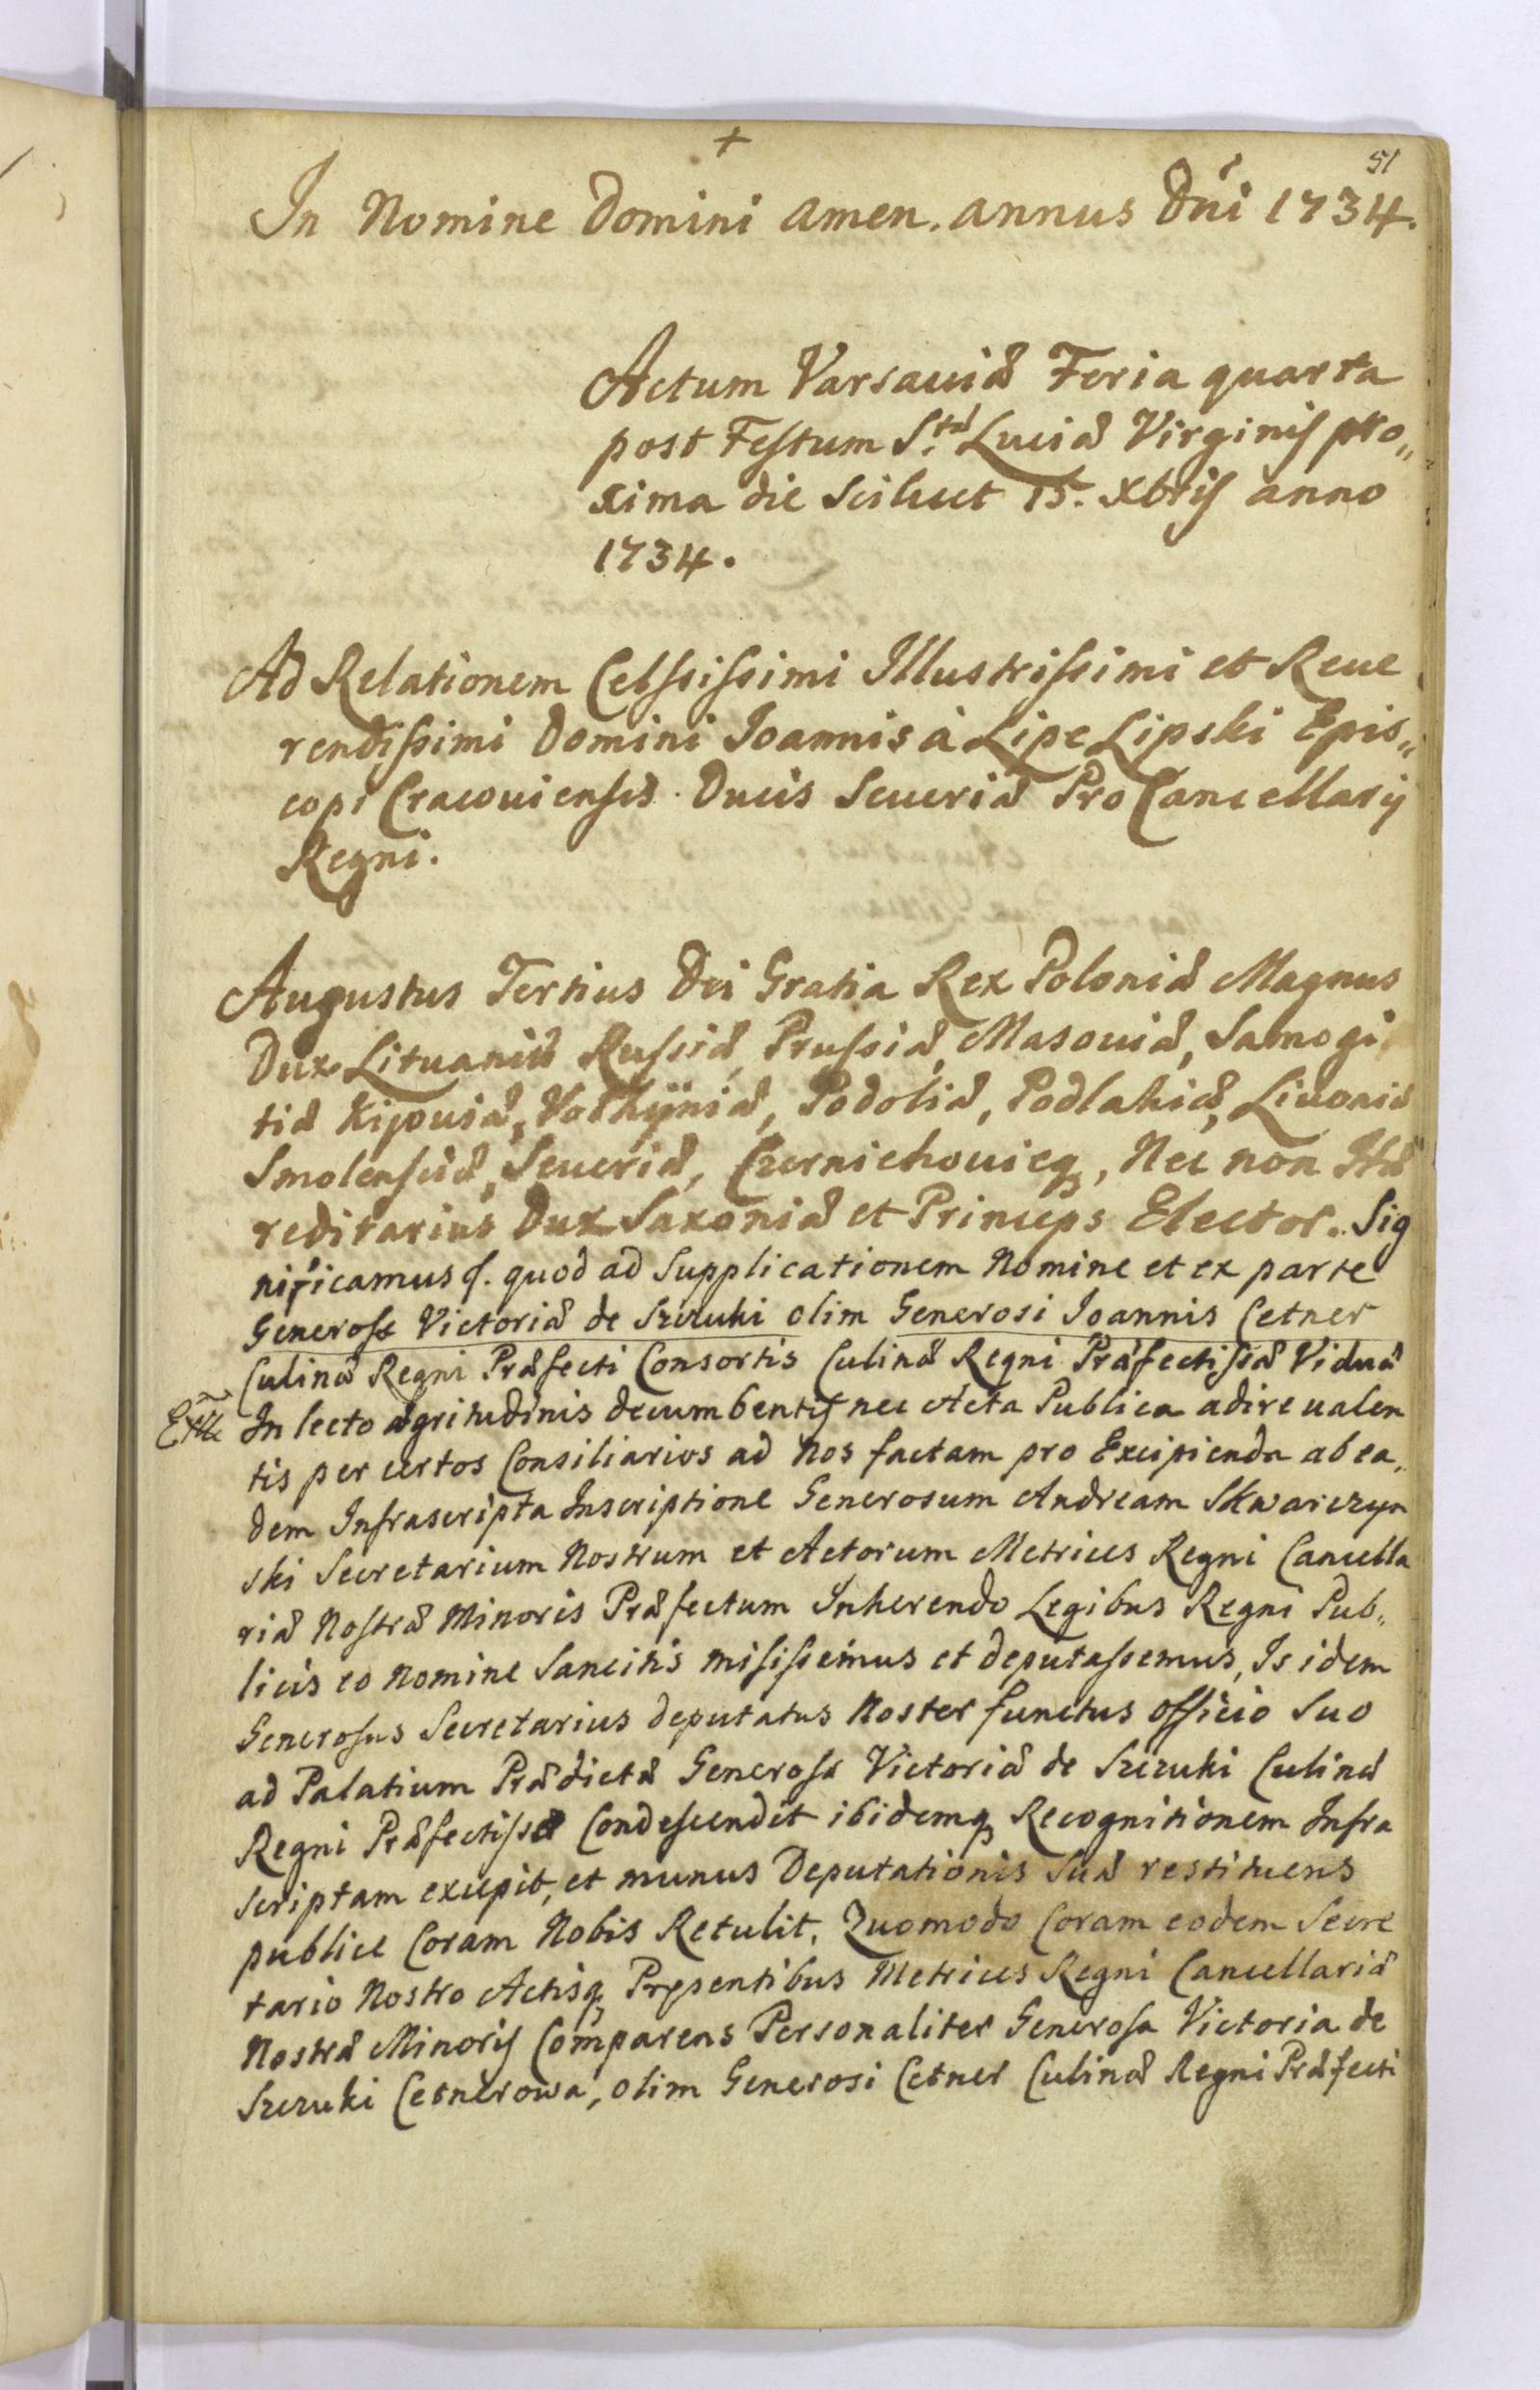 +
51
In Nomine Domini amen. annus Dni 1734.
Actum Varsaviæ Feria quarta
post Festum S.tæ Luciæ Virginis pro„
xima die Scilicet 15. Xbris anno
1734.
Ad Relationem Celsissimi Illustrissimi et Reve
rendissimi Domini Joannis à Lipe Lipski Epis„
copi Cracoviensis Ducis Severiæ Pro Cancellarij
Regni.
Augustus Tertius Dei Gratia Rex Poloniæ Magnus
Dux Lituaniæ Russiæ, Prussiæ, Masoviæ, Samogi
tiæ Kijoviæ, Volhÿniæ, Podoliæ, Podlahiæ, Livoniæ
Smolensciæ, Severiæ, Czerniehoviæq, Nec non Hæ
reditarius Dux Saxoniæ et Princeps Elector. Sig
nificamus &. quod ad Supplicationem Nomine et ex parte
Generosæ Victoriæ de Szczuki olim Generosi Joannis Cetner
Culinæ Regni Præfecti Consortis Culinæ Regni Præfectissæ Viduæ
In lecto ægritudinis decumbentis nec Acta Publica adire valen
tis per certos Consiliarios ad Nos factam pro Excipienda ab ea„
dem Infrascripta Inscriptione Generosum Andream Skwarczyn
ski Secretarium Nostrum et Actorum Metrices Regni Cancella
riæ Nostræ Minoris Præfectum Inherendo Legibus Regni Pub„
licis eo Nomine Sancitis misissemus et deputassemus, Is idem
Generosus Secretarius deputatus Noster functus officio Suo
ad Palatium Prædictæ Generosæ Victoriæ de Szczuki Culinæ
Regni Præfectissæ Condescendit ibidemq Recognitionem Infra
scriptam excepit, et munus Deputationis Suæ restituens
publice Coram Nobis Retulit. Quomodo Coram eodem Secre
tario Nostro Actisq Pręsentibus Metrices Regni Cancellariæ
Nostræ Minoris Comparens Personaliter Generosa Victoria de
Szczuki Cetnerowa, olim Generosi Cetner Culinæ Regni Præfecti